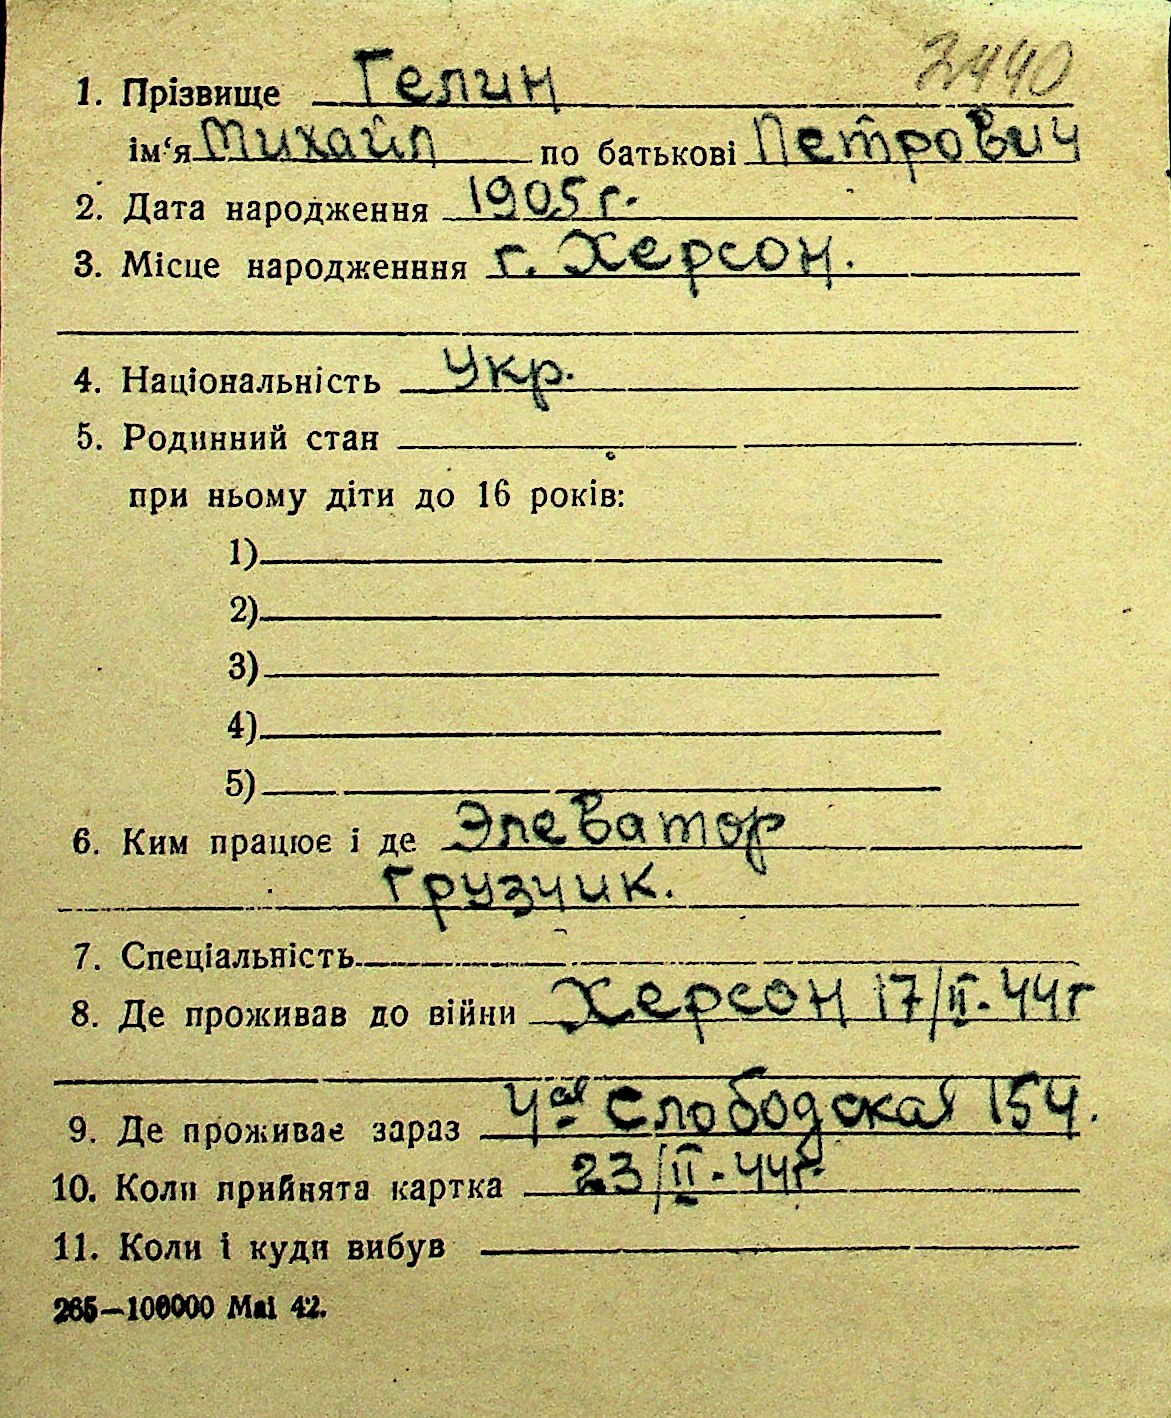 2440
1. Прізвище Гелин
ім‘я Михайл по батькові Петрович
2. Дата народження 1905 г.
3. Місце народженння г. Херсон.
4. Національність Укр.
5. Родинний стан
при ньому діти до 16 років:
1)
2)
3)
4)
5)
6. Ким працює і де Элеватор
грузчик.
7. Спеціальність
8. Де проживав до війни Херсон 17/II-44г
9. Де проживає зараз 4ая Слободская 154.
10. Коли прийнята картка 23/II-44г.
11. Коли і куди вибув
265—100000 Mai 42.